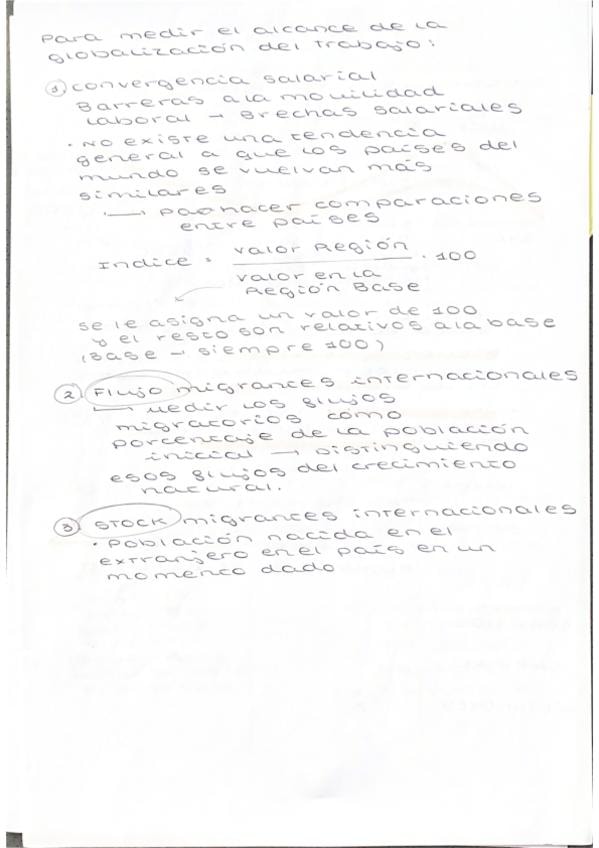 Para medir el alcance de la
globalización del trabajo:
1 convergencia salarial
Barreras a la movilidad
laboral → Brechas salariales
· No existe una tendencia
general a que los países del
mundo se vuelvan más
similares
→ hacer comparaciones
entre países
Indice = valor Región / valor en la Región Base · 100
se le asigna un valor de 100
y el resto son relativos a la base
(Base → siempre 100)
2 Flujo migrantes internacionales
→ Medir los flujos
migratorios como
porcentaje de la población
inicial → Distinguiendo
esos flujos del crecimiento
natural.
3 STOCK migrantes internacionales
· Población nacida en el
extranjero en el país en un
momento dado